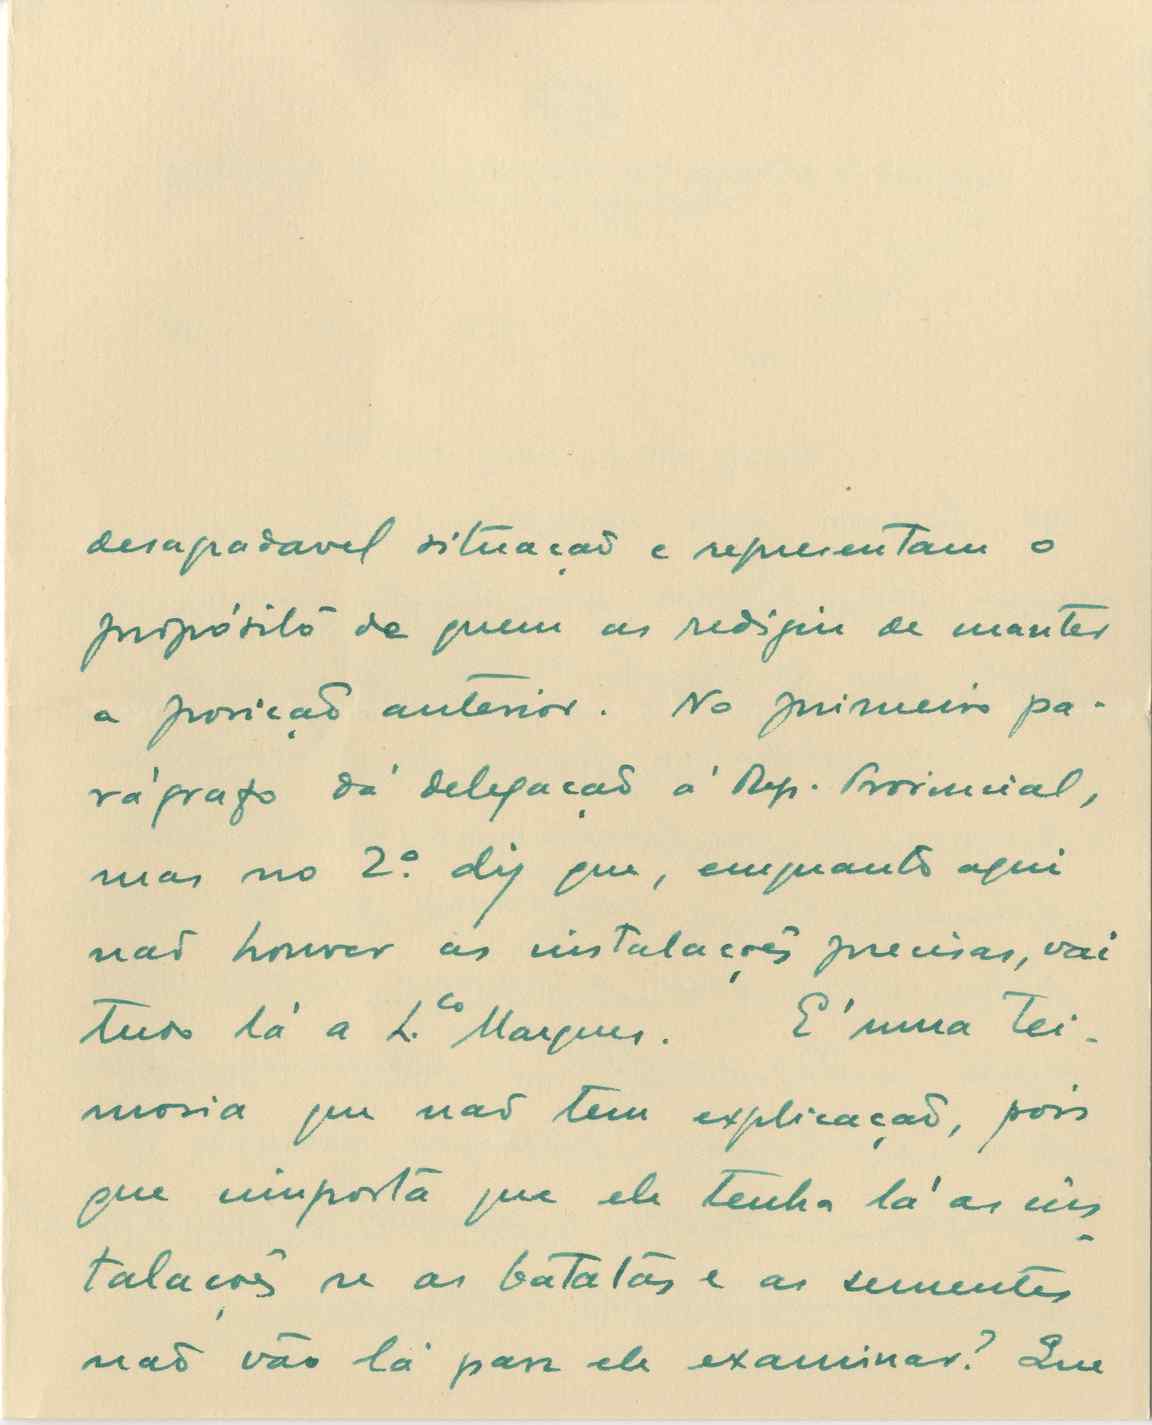 desagradavel situação e representam o
propósito de quem as redigiu de manter
a posição anterior. No primeiro pa-
rágrafo dá delegação á Rep. Provincial,
mas no 2º. diz que, emquanto aqui
não houver as instalações precisas, vai
tudo lá a L.ço Marques. E' uma tei-
mosia que não tem explicação, pois
que importa que ele tenha lá as ins-
talações se as batatas e as sementes
não vão lá para ele examinar? Que